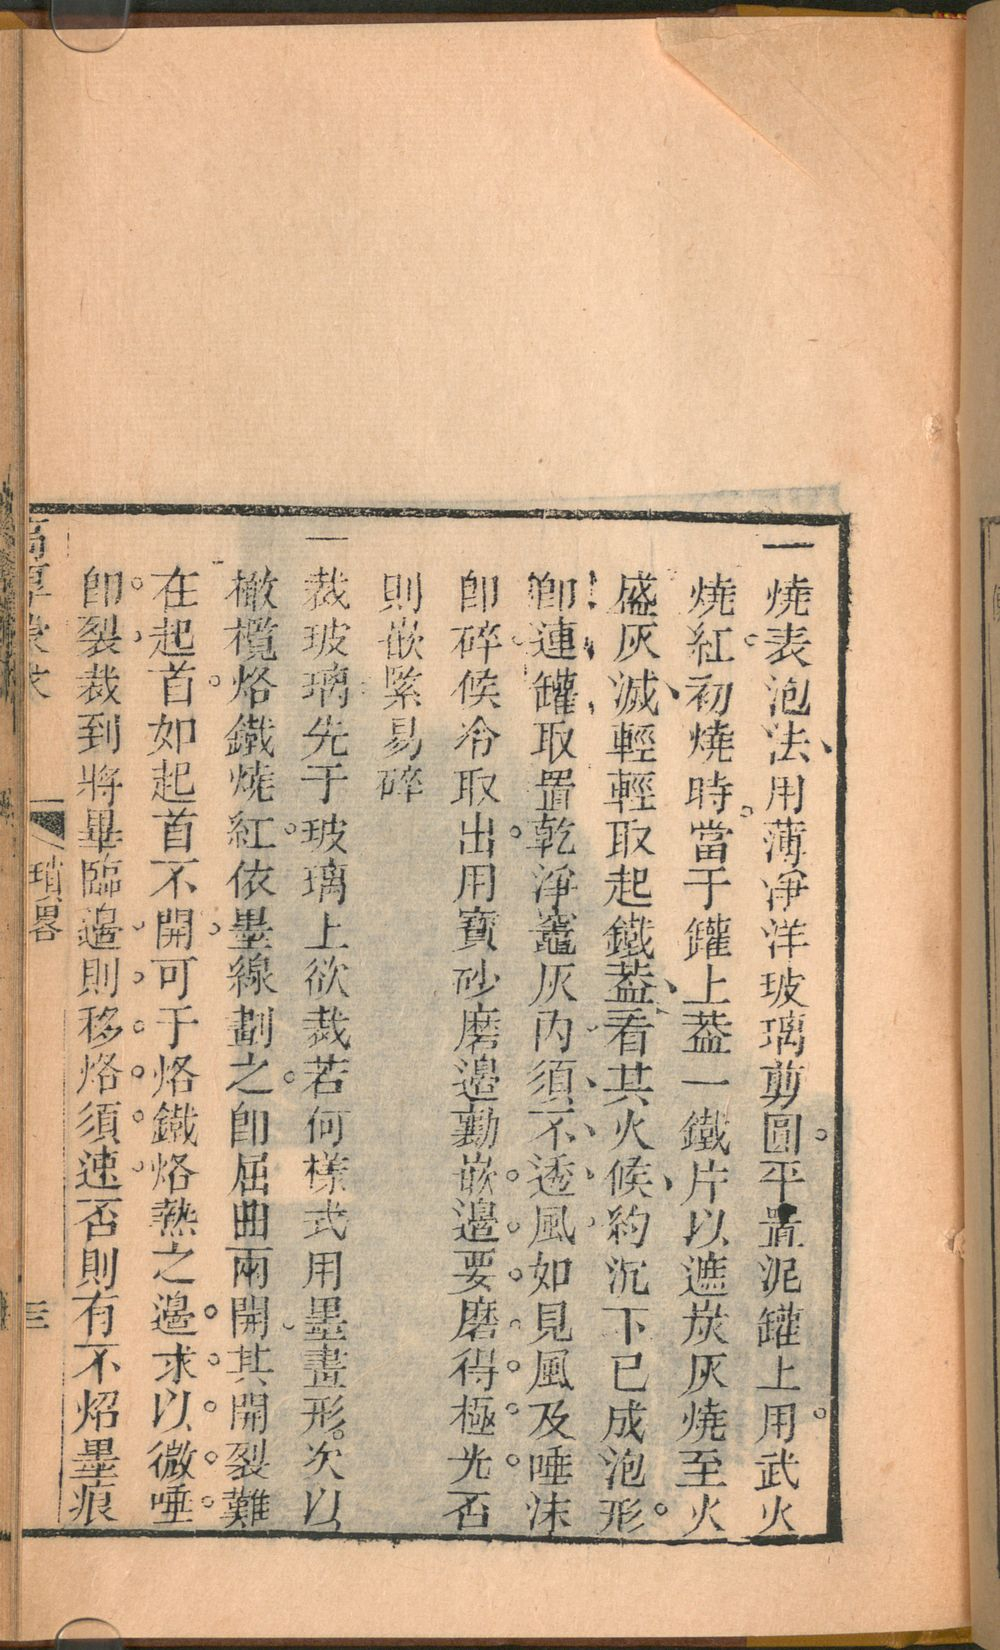 一燒表泡法用薄凈洋玻璃剪圓平置泥罐上用武火
燒紅初燒時當于罐上葢一鐵片以遮炭灰燒至火
盛灰滅輕輕取起鐵葢看其火候約沉下已成泡形
卽連罐取置乾淨竈灰內須不透風如見風及唾沫
卽碎候冷取出用寳砂磨邉勦嵌邉要磨得極光否
則嵌緊易碎
一裁玻璃先于玻璃上欲裁若何樣式用墨畫形次以
橄欖烙鐵燒紅依墨線劃之卽屈曲兩開其開裂難
在起首如起首不開可于烙鐵烙熱之邉求以微唾
卽裂裁到將畢臨邉則移烙須速否則有不炤墨痕
瑣畧
三